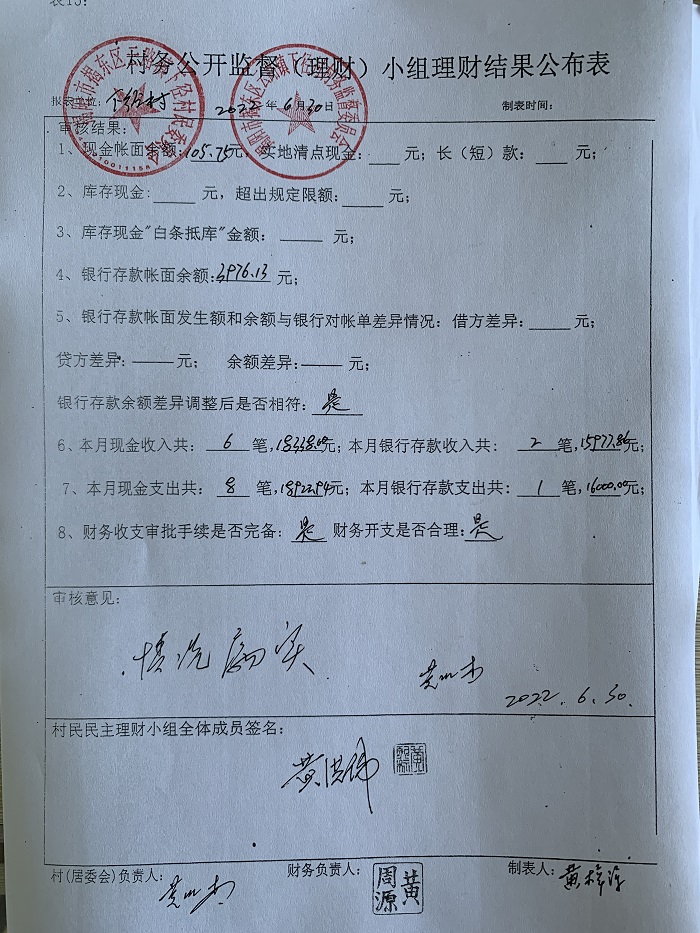 表15:
村务公开监督（理财）小组理财结果公布表
报表单位: 下径村 2022年6月30日 制表时间:
审核结果:
1、现金帐面余额:105.75元，实地清点现金:____元；长（短）款:____元；
2、库存现金:____元，超出规定限额:____元；
3、库存现金"白条抵库"金额: ____元；
4、银行存款帐面余额:3976.13元；
5、银行存款帐面发生额和余额与银行对帐单差异情况: 借方差异:____元；
贷方差异:____元； 余额差异:____元；
银行存款余额差异调整后是否相符: 是
6、本月现金收入共: 6 笔,18338.00元；本月银行存款收入共: 2 笔,15977.86元；
7、本月现金支出共: 8 笔,18922.94元；本月银行存款支出共: 1 笔,16000.00元；
8、财务收支审批手续是否完备: 是 财务开支是否合理: 是
审核意见:
情况属实
2022.6.30.
村民民主理财小组全体成员签名:
黄洪伟
村(居委会)负责人: 财务负责人: 黄周源 制表人: